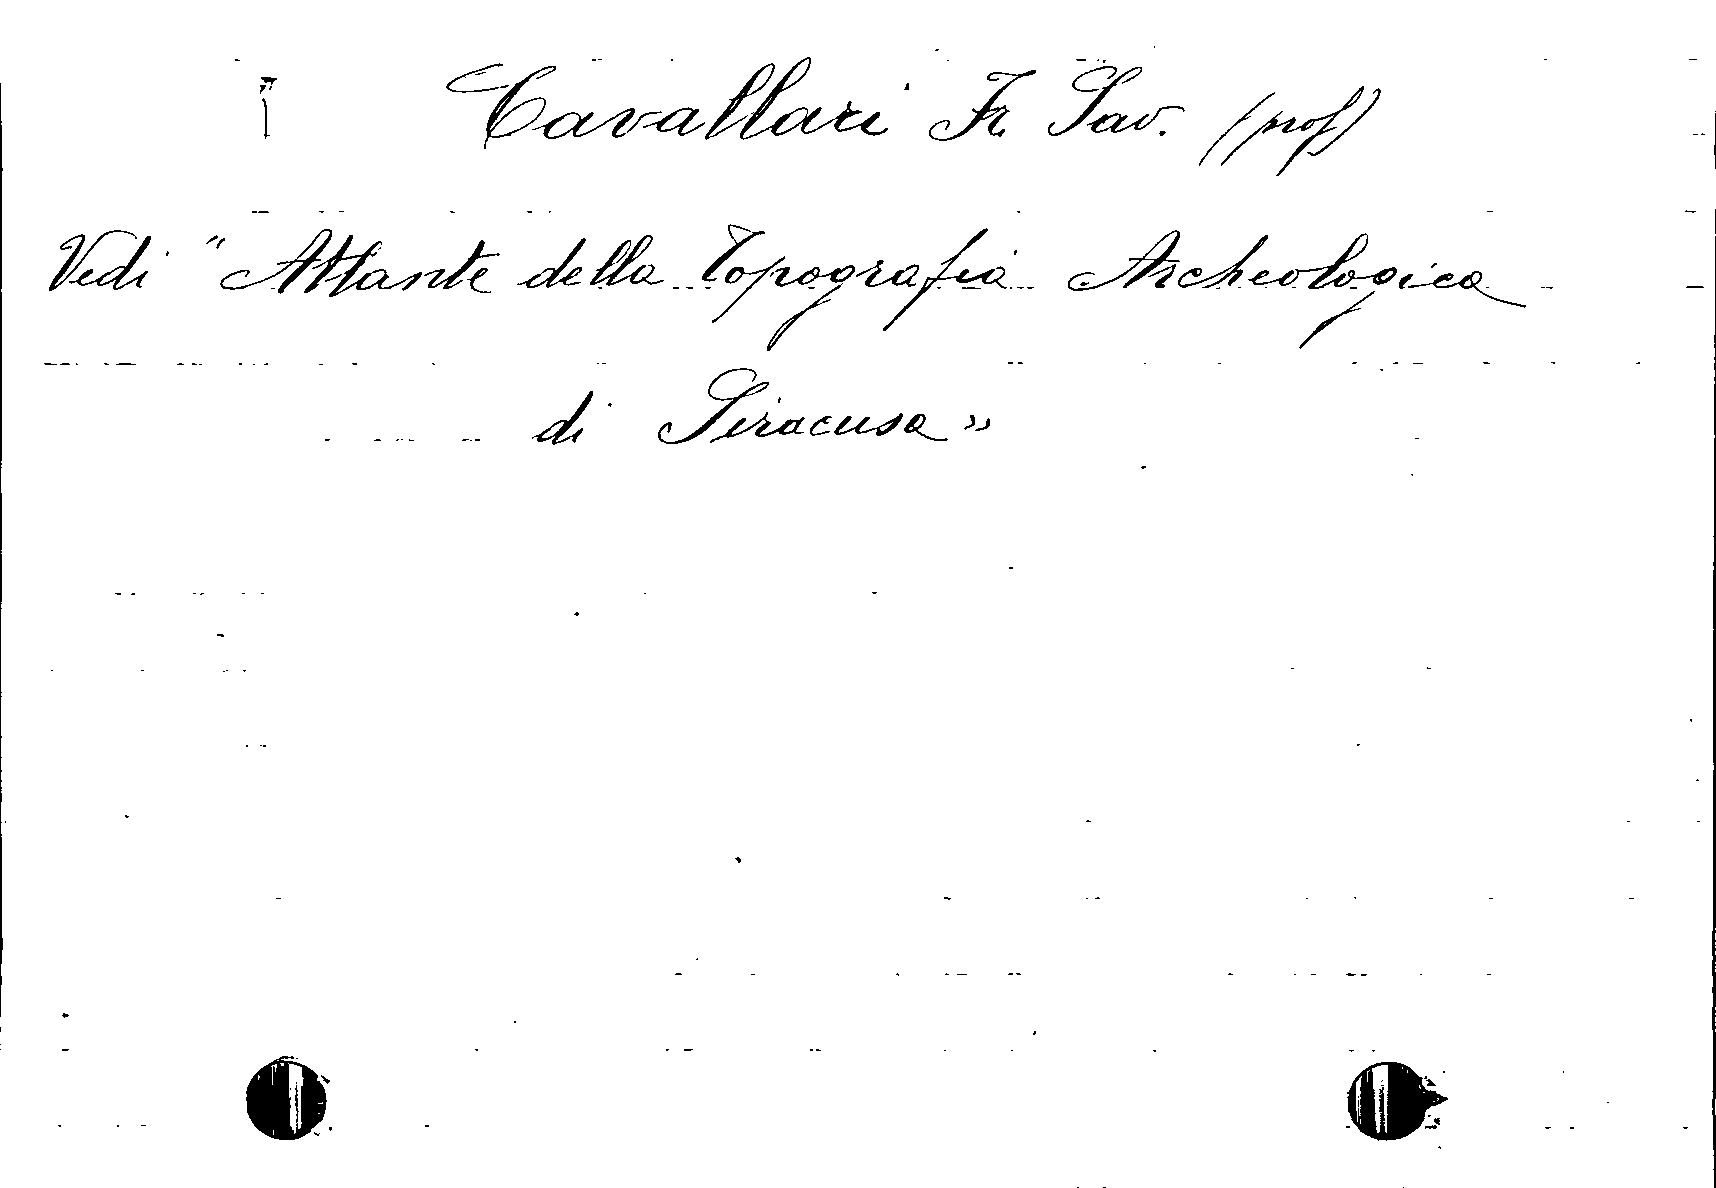 Cavallari Fr. Sav. (prof)
Vedi "Atlante della Topografia Archeologica
di Siracusa"